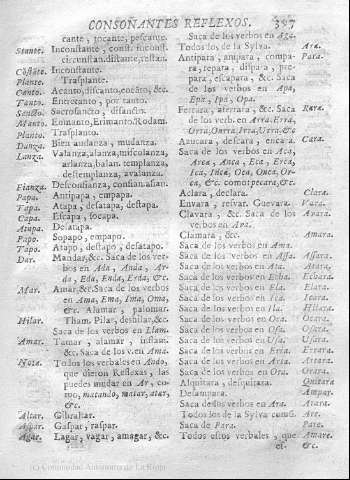 CONSONANTES REFLEXOS. 397
cante, tocante, pescante.
Stante. Inconstante, const. inconst.
circunstan. distante, restan.
Inconstante.
Plante. Trasplante.
Canto. Acanto, discanto, encáto, &c.
Tanto. Entretanto, por tanto.
Santo. Sacrosancto, disancto.
Manto. Erimanto. Rodam.
Planto. Trasplanto.
Danza. Bien andanza, mudanza.
Lanza. Valanza, alanza, miscolanza,
arlanza, balan. templanza,
destemplanza, avalanza.
Fianza. Desconfianza, confian. afian.
Papa. Antipapa, empapa.
Tapa. Atapa, desatapa, destapa.
Capa. Escapa, socapa.
Atapa. Desatapa.
Papo. Sopapo, empapo.
Tapo. Atapo, destapo, desatapo.
Dar. Mandar, &c. Saca de los ver-
bos en Ada, Anda, Ar-
da, Eda, Enda, Erda, &c.
Mar. Amar, &c. Saca de los verbos
en Ama, Ema, Ima, Oma,
&c. Alamar, palomar.
Hilar. Tham. Pilar, deshilar, &c.
Saca de los verbos en Llam.
Amar. Tamar, alamar, inflam.
&c. Saca de los v. en Ama.
Nota. Todos los verbales en Ando,
que dieron Reflexas, las
puedes mudar en Ar, co-
mo, matando, matar, atar,
&c.
Altar. Gibraltar.
Aspar. Gaspar, raspar.
Agar. Lagar, vagar, amagar, &c.
Saca de los verbos en Aga.
Todos los de la Sylva. Are.
Antipara, ampara, compa- Para.
ra, repara, dispara, pre-
para, escapara, &c. Saca
de los verbos en Apa,
Epa, Ipa, Opa.
Ferrara, aferrara, &c. Saca Rara.
de los verb. en Arra, Erra,
Orra, Urra, &c.
Azucara, descara, encara. Cara.
Saca de los verbos en Aca,
Arca, Anca, Eca, Erca,
Ica, Inca, Oca, Onca, Or-
ca, &c. como tpecara, &c.
Aclara, declara. Clara.
Envara, resvar. Guevara. Vara.
Clavara, &c. Saca de los Avara.
verbos en Ava.
Clamara, &c. Amara.
Saca de los verbos en Ama.
Saca de los verbos en Assa. Assara.
Saca de los verbos en Ata. Atara,
Saca de los verbos en Echa. Echara.
Saca de los verbos en Ela. Elara.
Saca de los verbos en Ica. Icara.
Saca de los verbos en Ila. Hilara.
Saca de los verbos en Ora. Orara.
Saca de los verbos en Osa. Osara.
Saca de los verbos en Usa. Usara.
Saca de los verbos en Erra. Errara.
Saca de los verbos en Arra.
Saca de los verbos en Oza. Ozara.
Alquitara, desquitara. Quitara
Desampara. Ampar.
Saca de los verbos en Ara. Arara.
Todos los de la Sylva comũ. Are.
Saca de Para. Pare.
Todos estos verbales, que Amare.
el. &c.
(c) Comunidad Autónoma de La Rioja